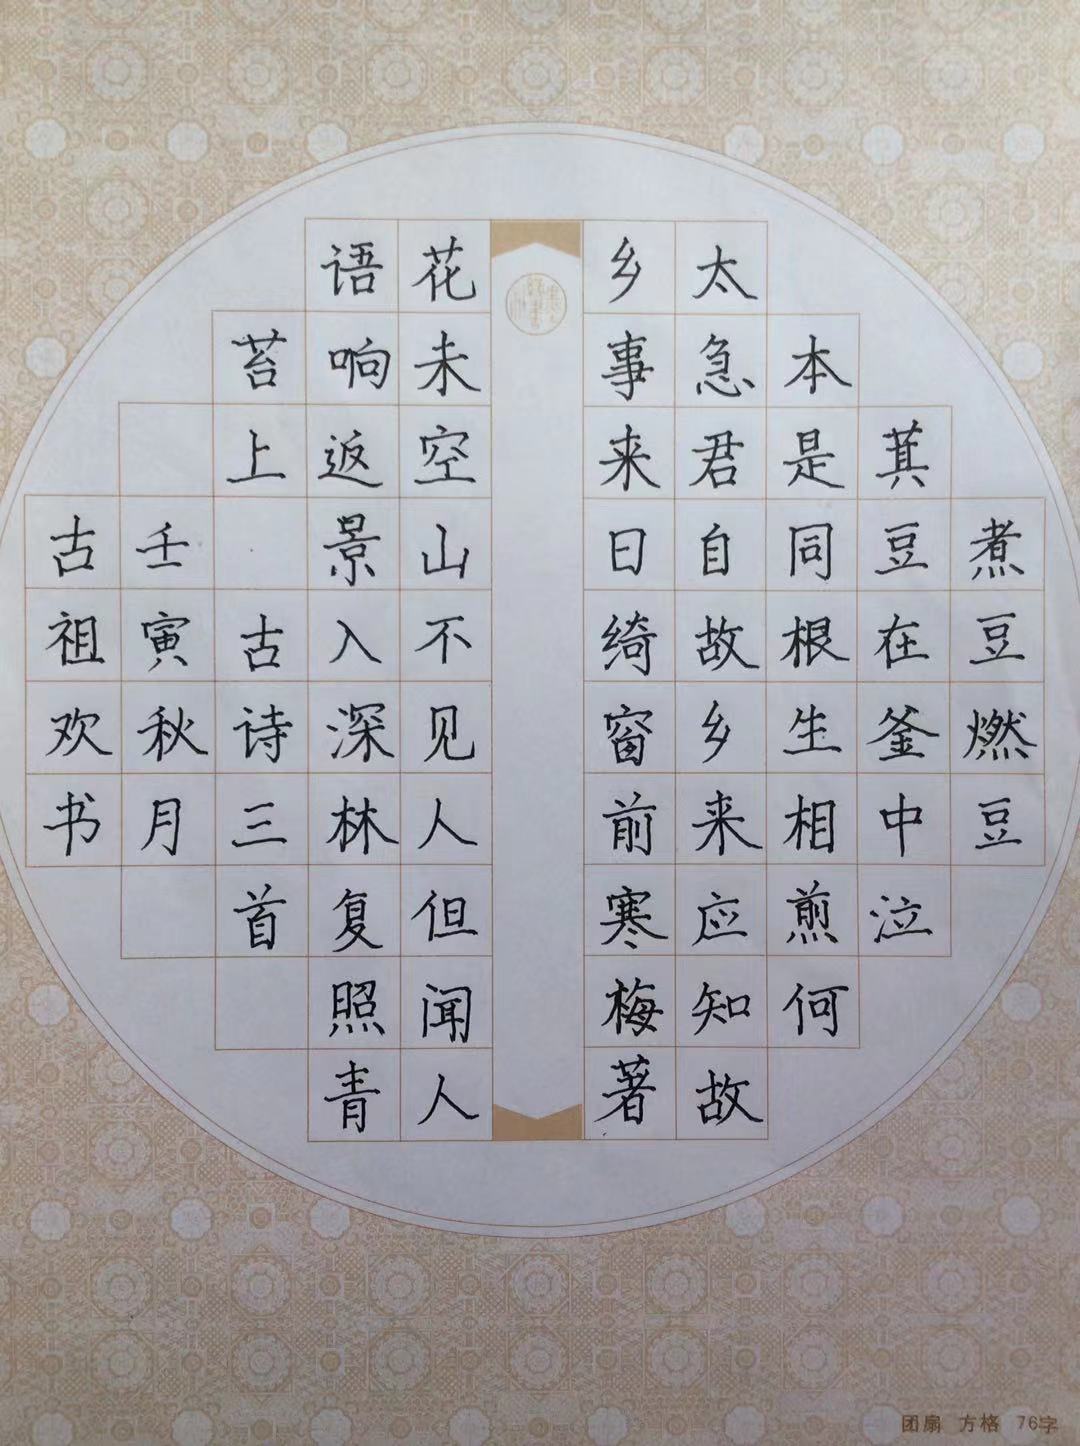 煮豆燃豆
萁豆在釜中泣
本是同根生相煎何
太急君自故乡来应知故
乡事来日绮窗前寒梅著
花未空山不见人但闻人
语响返景入深林复照青
苔上 古诗三首
壬寅秋月
古祖欢书
团扇 方格 76字